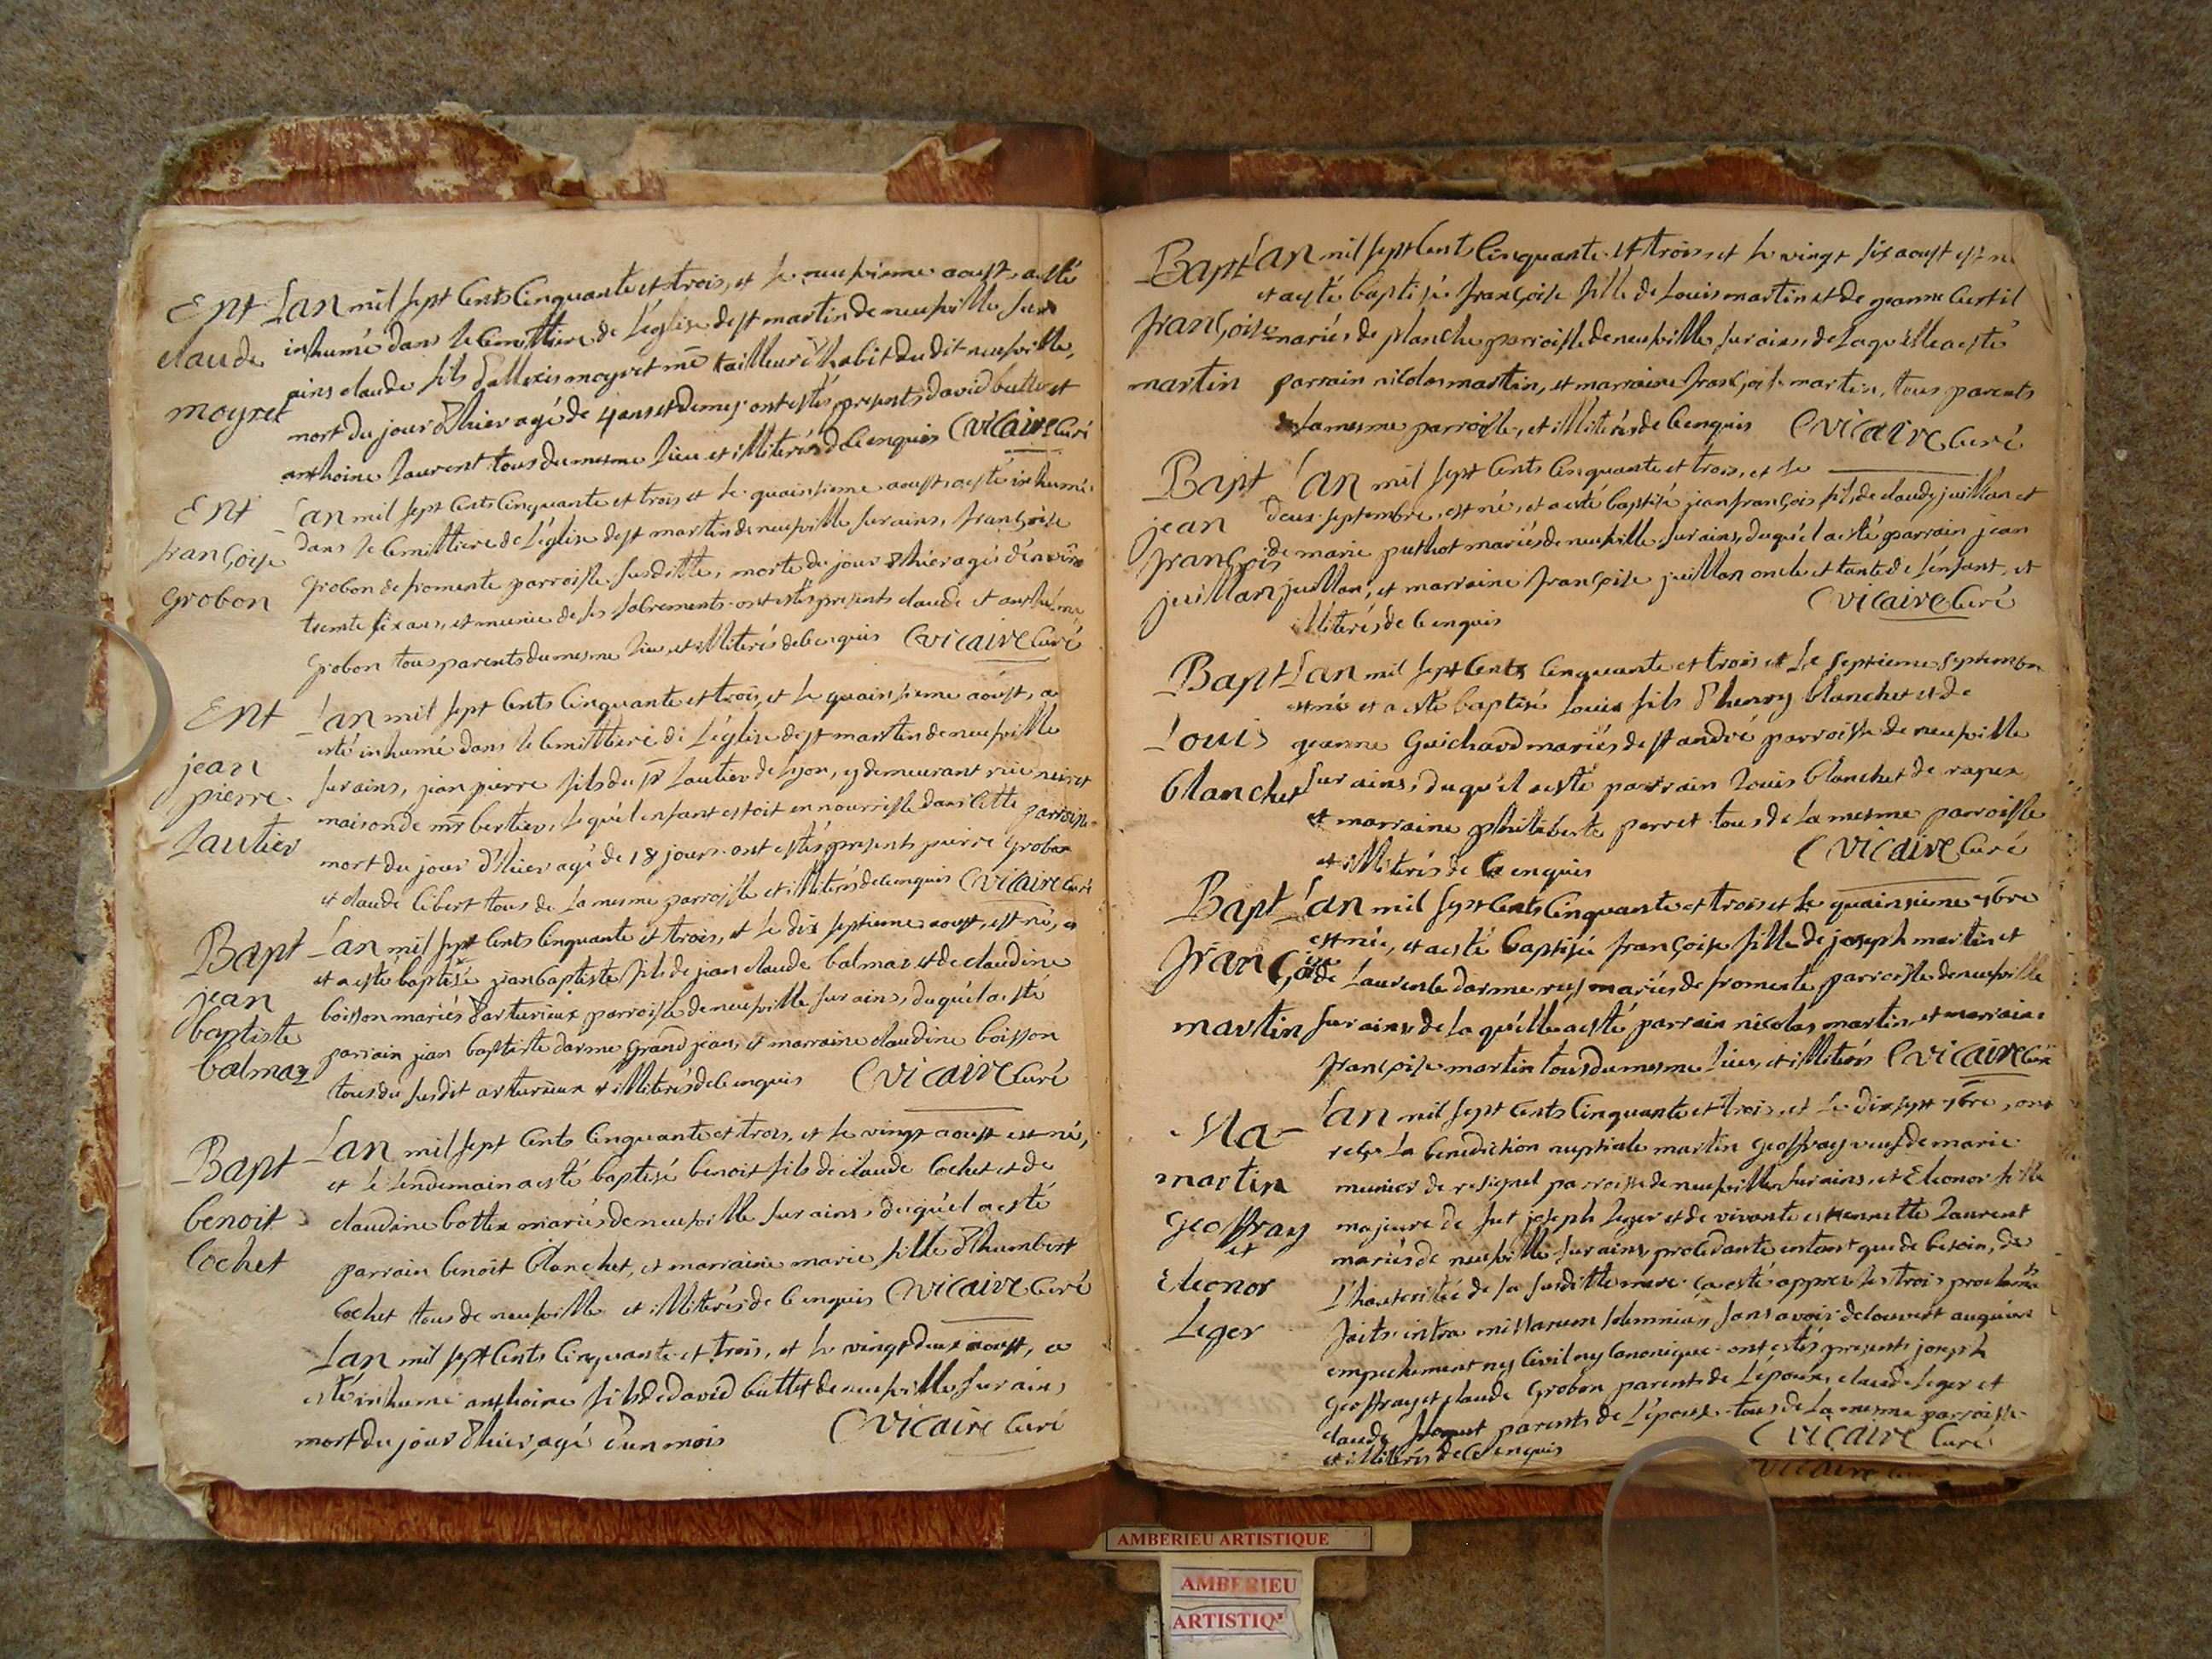 Ent
claude
moyret
Lan mil sept Cents Cinquante et trois, et le neufvieme aoust, a esté
inhumé dans le Cemittiere de L'église de st martin de neufville sur
ains claude fils d'allexis moyret mē tailleur d'habit du dit neufville,
mort du jour d'hier agé de 4 ans et demy ont estés presents david buttet et
anthoine Laurent tous du mesme lieu et illiterés de Ce enquis Cvicaire Curé
Ent
françoise
Grobon
Lan mil sept Cents Cinquante et trois et le quainsieme aoust, a esté inhumée
dans le Cemittiere de L'église de st martin de neufville sur ains, françoise
Grobon de fromente parroisse susditte, morte du jour d'hier agée d'environ
trente six ans, et munie de ses sacrements ont estés presents claude et anthelme
Grobon tous parents du mesme lieu, et illiterés de Ce enquis Cvicaire Curé
Ent
jean
pierre
Lautier
Lan mil sept Cents Cinquante et trois, et le quainsieme aoust, a
esté inhumé dans le Cemittiere de L'église de st martin de neufville
sur ains, jean pierre fils du sr Lautier de Lyon, y demeurant rue
maison de mr bertier, le quél enfant estoit en nourrisse dans Cette parroisse
mort du jour d'hier agé de 18 jours ont estés presents pierre Grobon
et claude Cibert tous de la mesme parroisse et illiterés de Ce enquis Cvicaire Curé
Bapt
jean
baptiste
balmaz
Lan mil sept Cents Cinquante et trois, et le dix septieme aoust, est né,
et a esté baptisé jean baptiste fils de jean claude balmaz et de claudine
boisson mariés d'arturieux parroisse de neufville sur ains, du quél a esté
parrain jean baptiste darme grand jean, et marraine claudine boisson
tous du susdit arturieux et illiterés de Ce enquis Cvicaire Curé
Bapt
benoit
Cochet
Lan mil sept Cents Cinquante et trois, et le vingt aoust est né,
et le Lendemain a esté baptisé benoit fils de claude Cochet et de
claudine bottex mariés de neufville sur ains, du quél a esté
parrain benoit blanchet, et marraine marie fille d'humbert
Cochet tous de neufville et illiterés de Ce enquis Cvicaire Curé
Lan mil sept Cents Cinquante et trois, et le vingt deux aoust, a
esté inhumé anthoine fils de david buttet de neufville sur ains
mort du jour d'hier, agé d'un mois Cvicaire Curé
Bapt
françoise
martin
Lan mil sept Cents Cinquante et trois et le vingt six aoust est né
et a esté baptisée françoise fille de Louis martin et de jeanne Curtil
mariés de planche parroisse de neufville sur ains, de la quélle a esté
parrain nicolas martin, et marraine françoise martin, tous parents
de la mesme parroisse, et illiterés de Ce enquis Cvicaire Curé
Bapt
jean
françois
juillan
Lan mil sept Cents Cinquante et trois, et le
deux septembre, est né, et a esté baptisé jean françois fils de claude juillan et
de marie puthot mariés de neufville sur ains, du quél a esté parrain jean
juillan, et marraine françoise juillan oncle et tante de L'enfant, et
illiterés de Ce enquis Cvicaire Curé
Bapt
Louis
blanchet
Lan mil sept Cents Cinquante et trois et le septieme septembre
est né et a esté baptisé Louis fils d'henry blanchet et de
jeanne Guichard mariés de st andré parroisse de neufville
sur ains, du qu'él a esté parrain Louis blanchet de rapux
et marraine philiberte perret tous de la mesme parroisse
et illiterés de Ce enquis Cvicaire Curé
Bapt
Françoise
martin
Lan mil sept Cents Cinquante et trois et le quainsieme 7bre
est née, et a esté baptisée françoise fille de joseph martin et
de Laurence darmerey mariés de fromente parroisse de neufville
sur ains de la qu'élle a esté parrain nicolas martin, et marraine
françoise martin tous du mesme lieu, et illiterés Cvicaire Curé
Ma
martin
Geoffray
et
Eleonor
Leger
Lan mil sept Cents Cinquante et trois, et le dix sept 7bre, ont
reçu la benediction nuptiale martin Geoffray veuf de marie
munier de resignel parroisse de neufville sur ains, et Eleonor fille
majeure de fut joseph Leger et de vivante et Henriette Laurent
mariés de neufville sur ains, procedante entant que de besoin, de
L'hautorité de sa susditte mere. ça esté appres les trois proclama
faits intra missarum solemnia, sans avoir decouvert auquun
empechement ny Civil ny Canonique. ont estés presents joseph
Geoffray et claude Grobon parents de L'époux, claude Leger et
claude parents de L'épouse tous de la mesme parroisse
et illiterés de Ce enquis Cvicaire Curé
vicaire
AMBERIEU ARTISTIQUE
AMBERIEU
ARTISTIQ